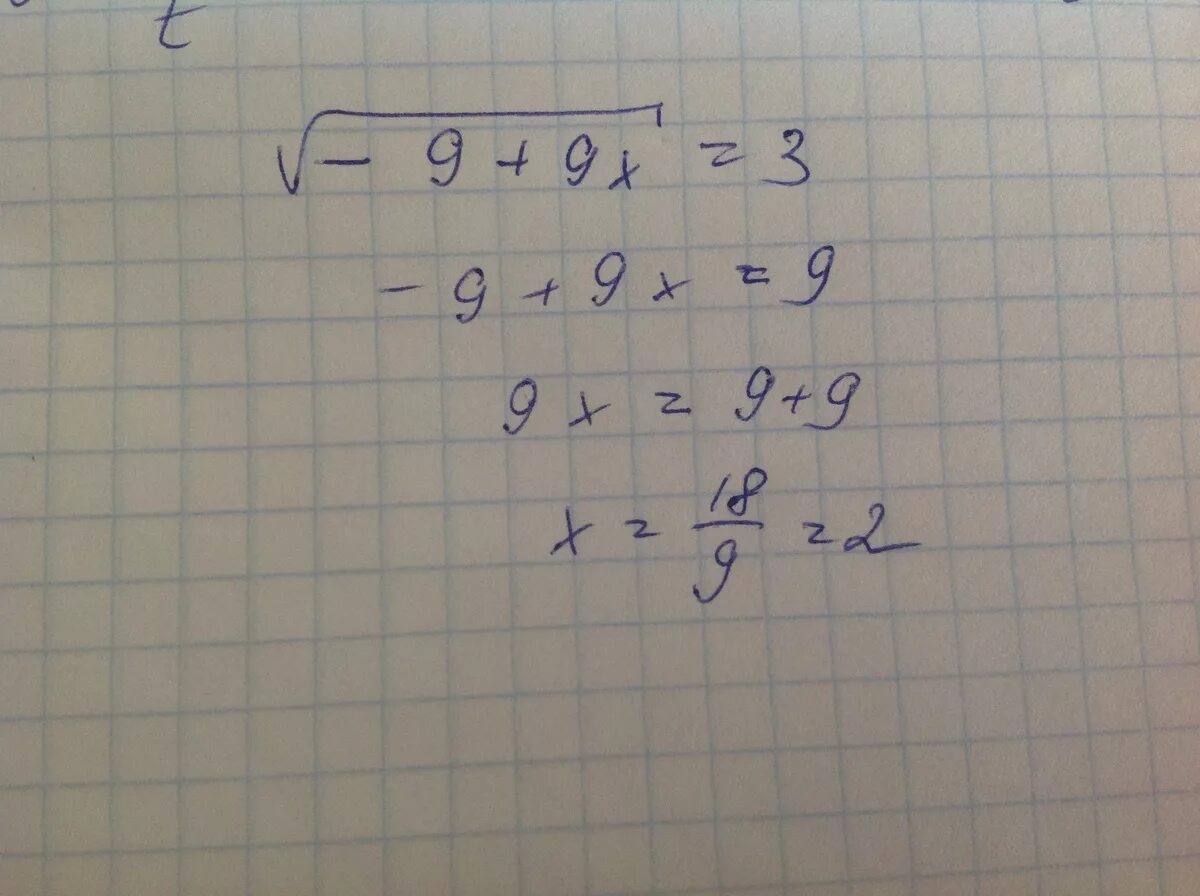 t
√(- 9 + 9x) = 3
- 9 + 9x = 9
9x = 9+9
x = 18/9 = 2